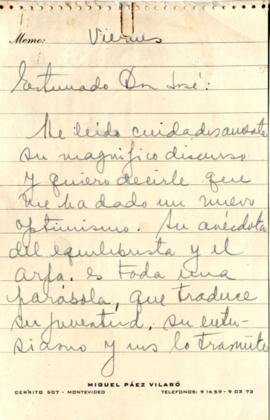 Memo: Viernes
Estimado Don José:
He leído cuidadosamente
su magnífico discurso
y quiero decirle que
me ha dado un nuevo
optimismo. Su anécdota
del equilibrista y el
arpa. es toda una
parábola, que traduce
su juventud, su entu-
siasmo y nos lo tramite
MIGUEL PÁEZ VILARÓ
CERRITO 507 - MONTEVIDEO TELEFONOS: 9 16 59 - 9 03 73